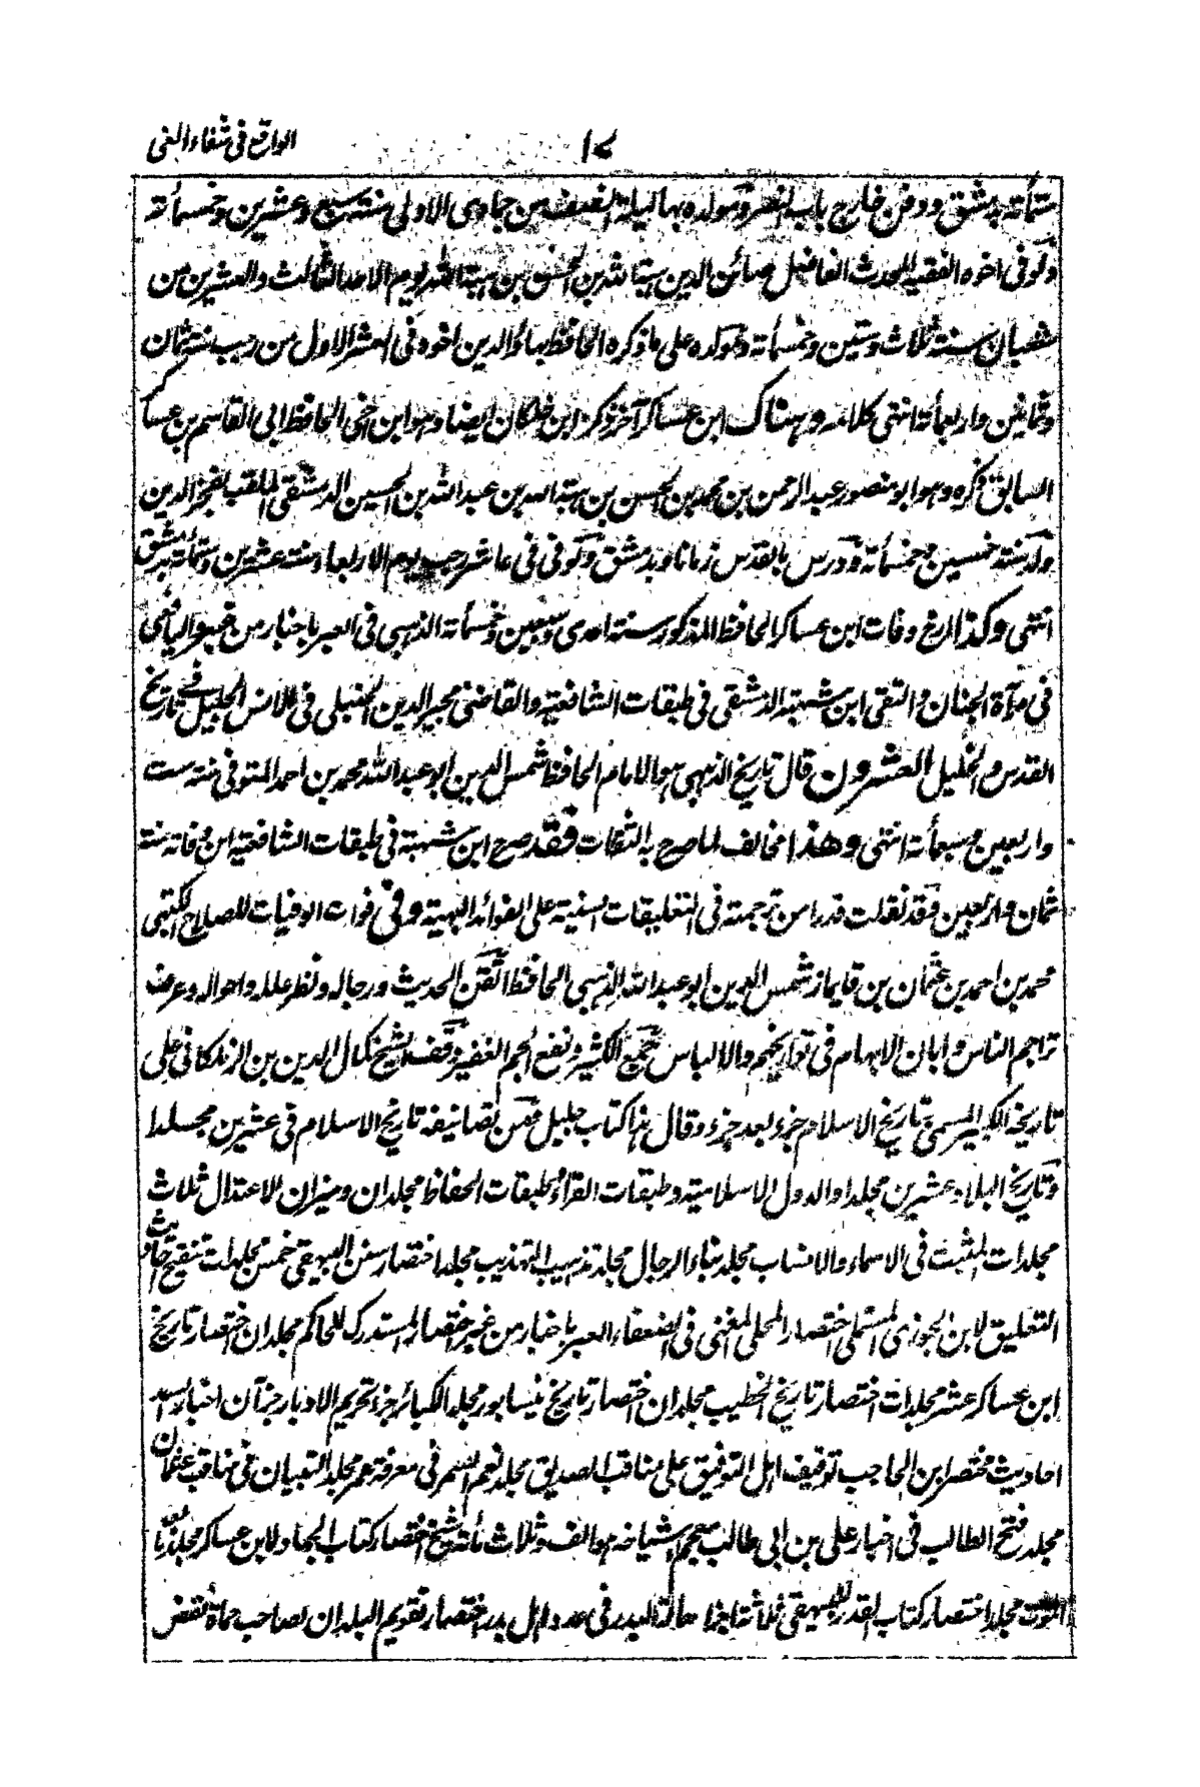 الواقع فى شفاء العى
١٧
ستمأته بدمشق ودفن خارج باب النصر ومولده بها ليلة النصف من جمادى الاولى سنة سبع وعشرين وخمسمأته
وتوفى اخوه الفقيه المحدث الفاضل صائن الدين هبة الله بن الحسن بن هبة الله يوم الاحد الثالث والعشرين من
شعبان سنة ثلاث وستين وخمسمأته ومولده على ما ذكره الحافظ بهاء الدين اخوه فى العشر الاول من رجب سنة ثمان
وثمانين واربعمأته انتهى كلامه وهناك ابن عساكر آخر ذكره ابن خلكان ايضا وهو ابن اخى الحافظ ابى القاسم بن عساكر
السابق ذكره وهو ابو منصور عبد الرحمن بن محمد بن الحسن بن هبة الله بن عبد الله بن الحسين الدمشقى الملقب بفخر الدين
ولد سنة خمسين وخمسمأته ودرس بالقدس زمانا وبدمشق وتوفى فى عاشر رجب يوم الاربعاء سنة عشرين وستمأته بدمشق
انتهى وكذا ارخ وفات ابن عساكر الحافظ المذكور سنة احدى وسبعين وخمسمأته الذهبى فى العبر باخبار من غبر واليافعى
فى مرآة الجنان والتقى ابن شهبة الدمشقى فى طبقات الشافعية والقاضى مجير الدين الحنبلى فى الانس الجليل فى تاريخ
القدس والخليل العشرون قال تاريخ الذهبى هو الامام الحافظ شمس الدين ابو عبد الله محمد بن احمد المتوفى سنة ست
واربعين وسبعمأته انتهى وهذا مخالف لما صرح به الثقات فقد صرح ابن شهبة فى طبقات الشافعية ان وفاته سنة
ثمان واربعين وقد نقلت قدرا من ترجمته فى التعليقات السنية على الفوائد البهية وفى فوات الوفيات للصلاح الكتبى
محمد بن احمد بن عثمان بن قايماز شمس الدين ابو عبد الله الذهبى الحافظ اتقن الحديث ورجاله ونظر علله واحواله وعرف
تراجم الناس وابان الابهام فى تواريخهم والالباس جمع الكثير ونفع الجم الغفير وقف الشيخ كمال الدين بن الزملكانى على
تاريخه الكبير المسمى بتاريخ الاسلام جزء بعد جزء وقال هذا كتاب جليل فمن تصانيفه تاريخ الاسلام فى عشرين مجلدا
وتاريخ النبلاء عشرين مجلدا والدول الاسلامية وطبقات القراء وطبقات الحفاظ مجلدان وميزان الاعتدال ثلاث
مجلدات المثبت فى الاسماء والانساب مجلد نباء الرجال مجلد تذهيب التهذيب مجلد اختصار سنن البيهقى خمس مجلدات تنقيح احاديث
التعليق لابن الجوزى المستحلى اختصار المحلى المغنى فى الضعفاء العبر باخبار من غبر اختصار المستدرك للحاكم مجلدان اختصار تاريخ
ابن عساكر عشر مجلدات اختصار تاريخ الخطيب مجلدان اختصار تاريخ نيسابور مجلد الكبائر جزء تحريم الادبار جزآن اخبار السد
احاديث مختصر ابن الحاجب توقيف اهل التوفيق على مناقب الصديق مجلد نعم السمر فى معرفة عمر مجلد التبيان فى مناقب عثمان
مجلد فتح الطالب فى اخبار على بن ابى طالب معجم اشياخه هو الف وثلاث مأته شيخ اختصار كتاب الجهاد لابن عساكر مجلد ما بعد
الموت مجلد اختصار كتاب القدر للبيهقى ثلاثة اجزا هالة البدر فى عدد اهل بدر اختصار تقويم البلدان لصاحب حماة نفض